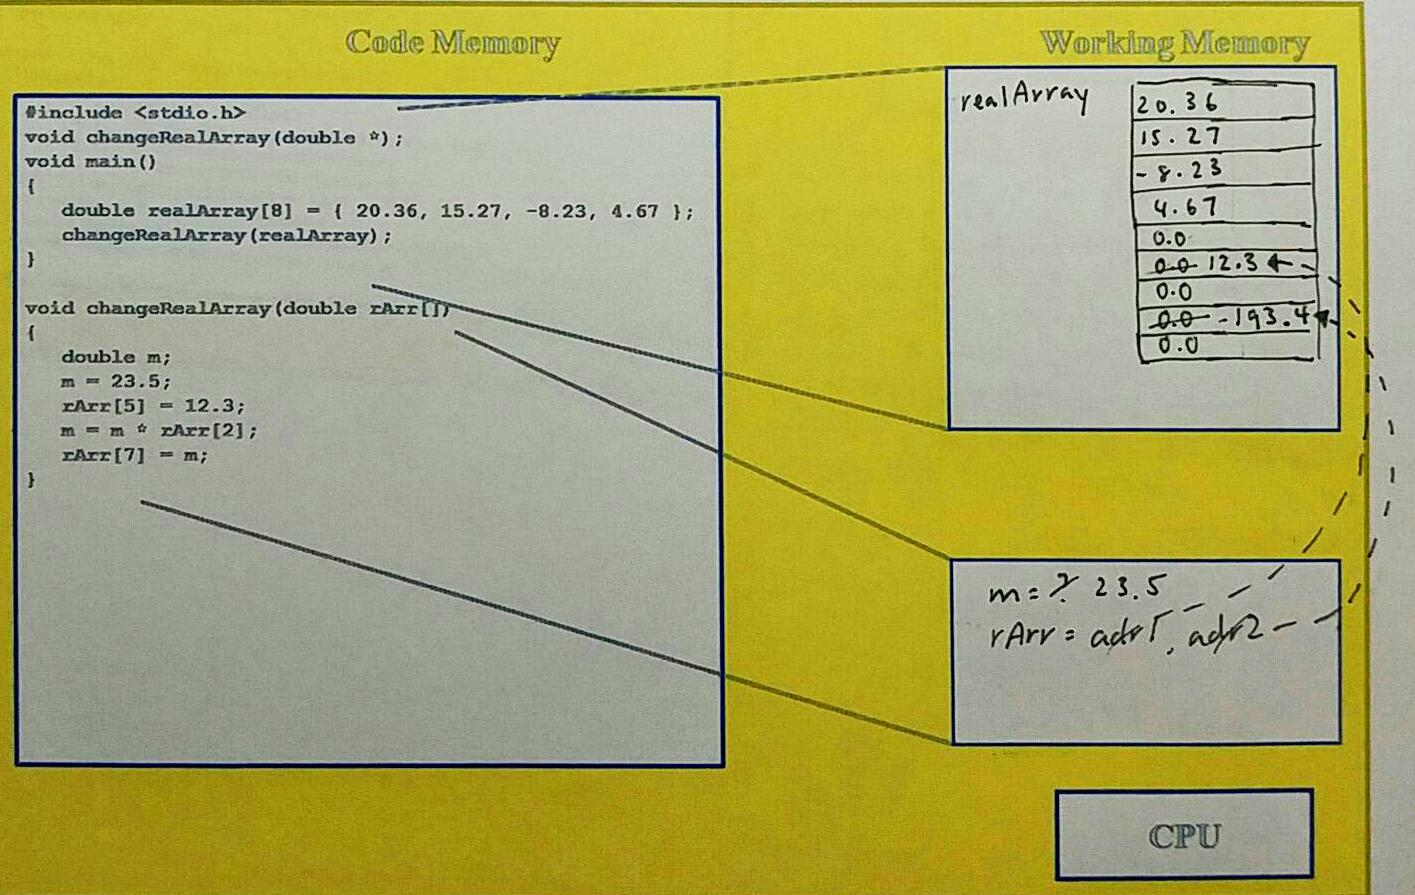 Code Memory
Working Memory
#include <stdio.h>
void changeRealArray(double *);
void main()
{
double realArray[8] = { 20.36, 15.27, -8.23, 4.67 };
changeRealArray(realArray);
}
void changeRealArray(double rArr[])
{
double m;
m = 23.5;
rArr[5] = 12.3;
m = m * rArr[2];
rArr[7] = m;
}
realArray
20.36
15.27
-8.23
4.67
0.0
0.0 12.3
0.0
0.0 -193.4
0.0
m = ? 23.5
rArr = adr1, adr2
CPU